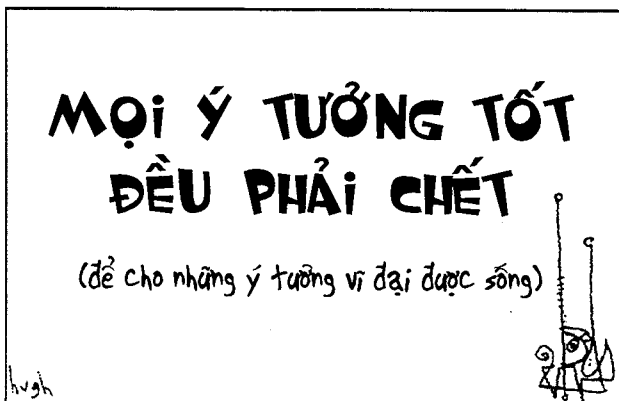 MỌi Ý TƯỞNG TỐT
ĐỀU PHẢi CHẾT
(để cho những ý tưởng vĩ đại được sống)
hugh